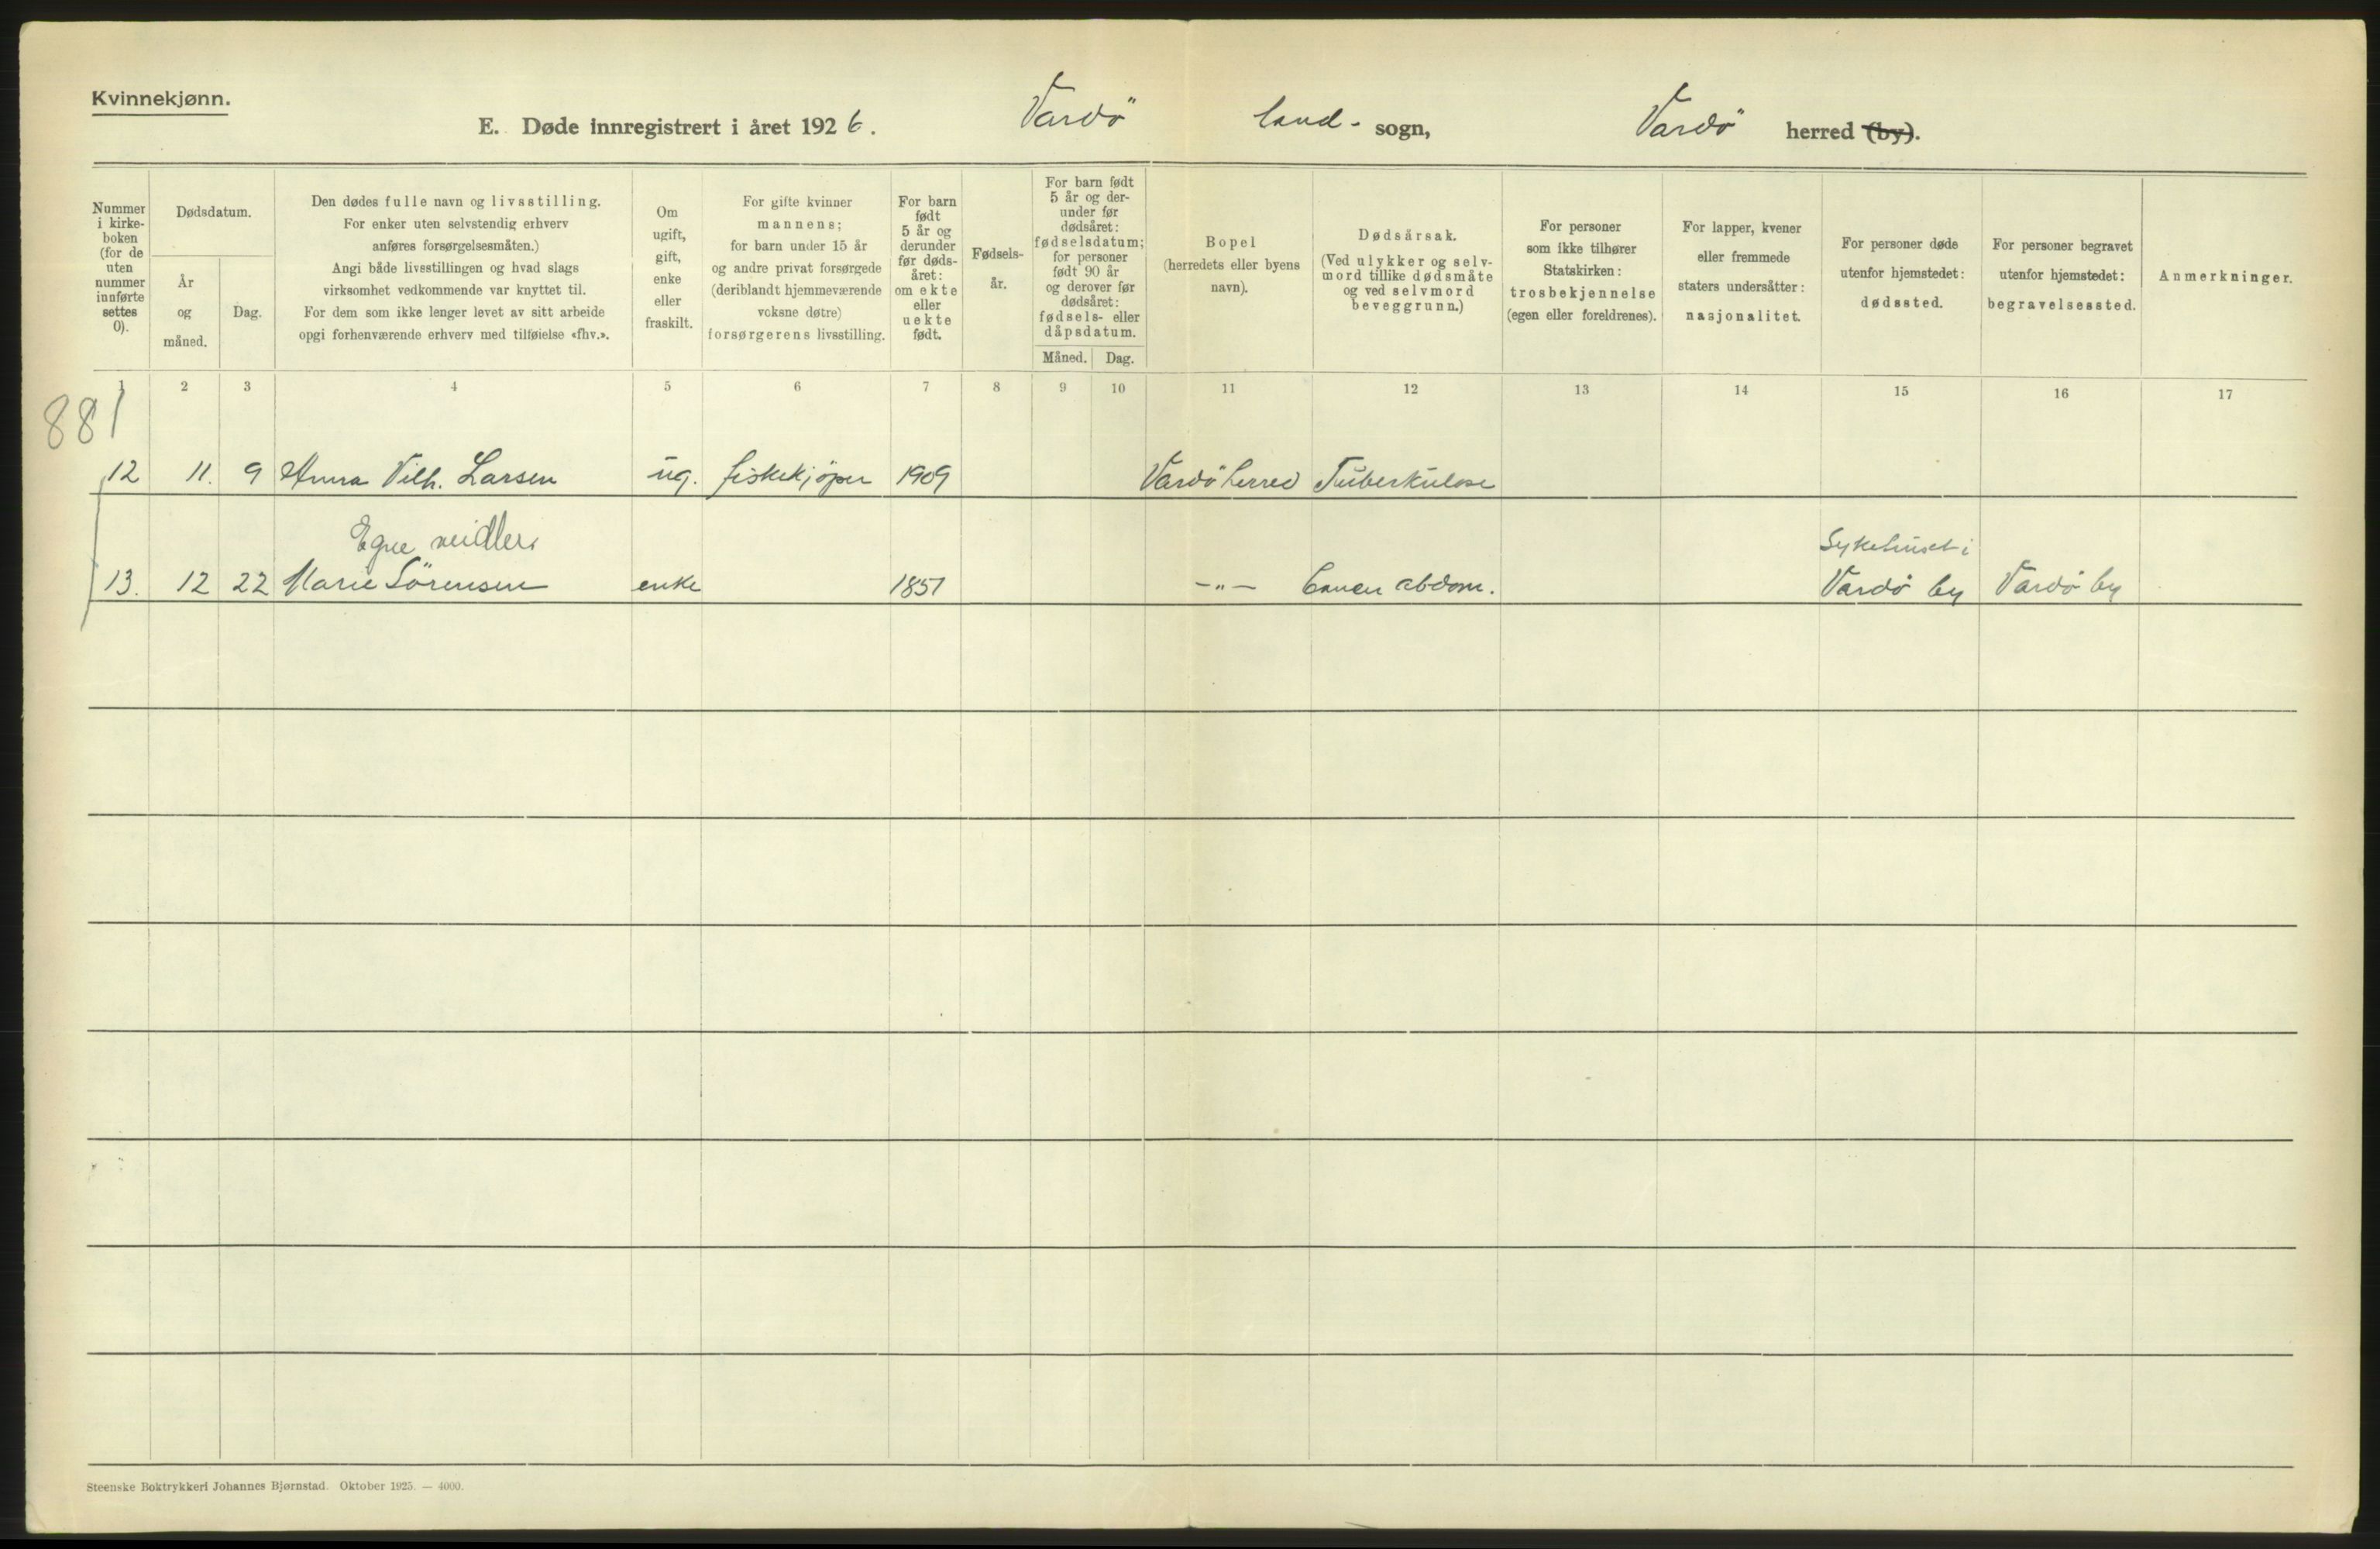 Kvinnekjønn.
E. Døde innregistrert i året 1926. Vardö land- sogn, Vardö herred (by).
Nummer i kirke-boken (for de uten nummer innførte settes 0).
Dødsdatum.
År og måned.
Dag.
Den dødes fulle navn og livsstilling.
For enker uten selvstendig erhverv
anføres forsørgelsesmåten.)
Angi både livsstillingen og hvad slags
virksomhet vedkommende var knyttet til.
For dem som ikke lenger levet av sitt arbeide
opgi forhenværende erhverv med tilføielse «fhv.».
Om
ugift,
gift,
enke
eller
fraskilt.
For gifte kvinner
mannens;
for barn under 15 år
og andre privat forsørgede
(deriblandt hjemmeværende
voksne døtre)
forsørgerens livsstilling.
For barn
født
5 år og
derunder
før døds-
året:
om ekte
eller
uekte
født.
Fødsels-
år.
For barn født
5 år og der-
under før
dødsåret:
fødselsdatum;
for personer
født 90 år
og derover før
dødsåret:
fødsels- eller
dåpsdatum.
Måned. Dag.
Bopel
(herredets eller byens
navn).
Dødsårsak.
(Ved ulykker og selv-
mord tillike dødsmåte
og ved selvmord
beveggrunn.)
For personer
som ikke tilhører
Statskirken:
trosbekjennelse
(egen eller foreldrenes).
For lapper, kvener
eller fremmede
staters undersåtter:
nasjonalitet.
For personer døde
utenfor hjemstedet:
dødssted.
For personer begravet
utenfor hjemstedet:
begravelsessted.
Anmerkninger.
1 2 3 4 5 6 7 8 9 10 11 12 13 14 15 16 17
881
12 11. 9 Anna Vilh. Larsen ug. fiskekjöper 1909 Vardö herred Tuberkulose
Egne midler Sykehuset i
13. 12 22 Marie Sörensen enke 1851 -"- Cancer abdom. Vardö by Vardö by
Steenske Boktrykkeri Johannes Bjørnstad. Oktober 1925. — 4000.